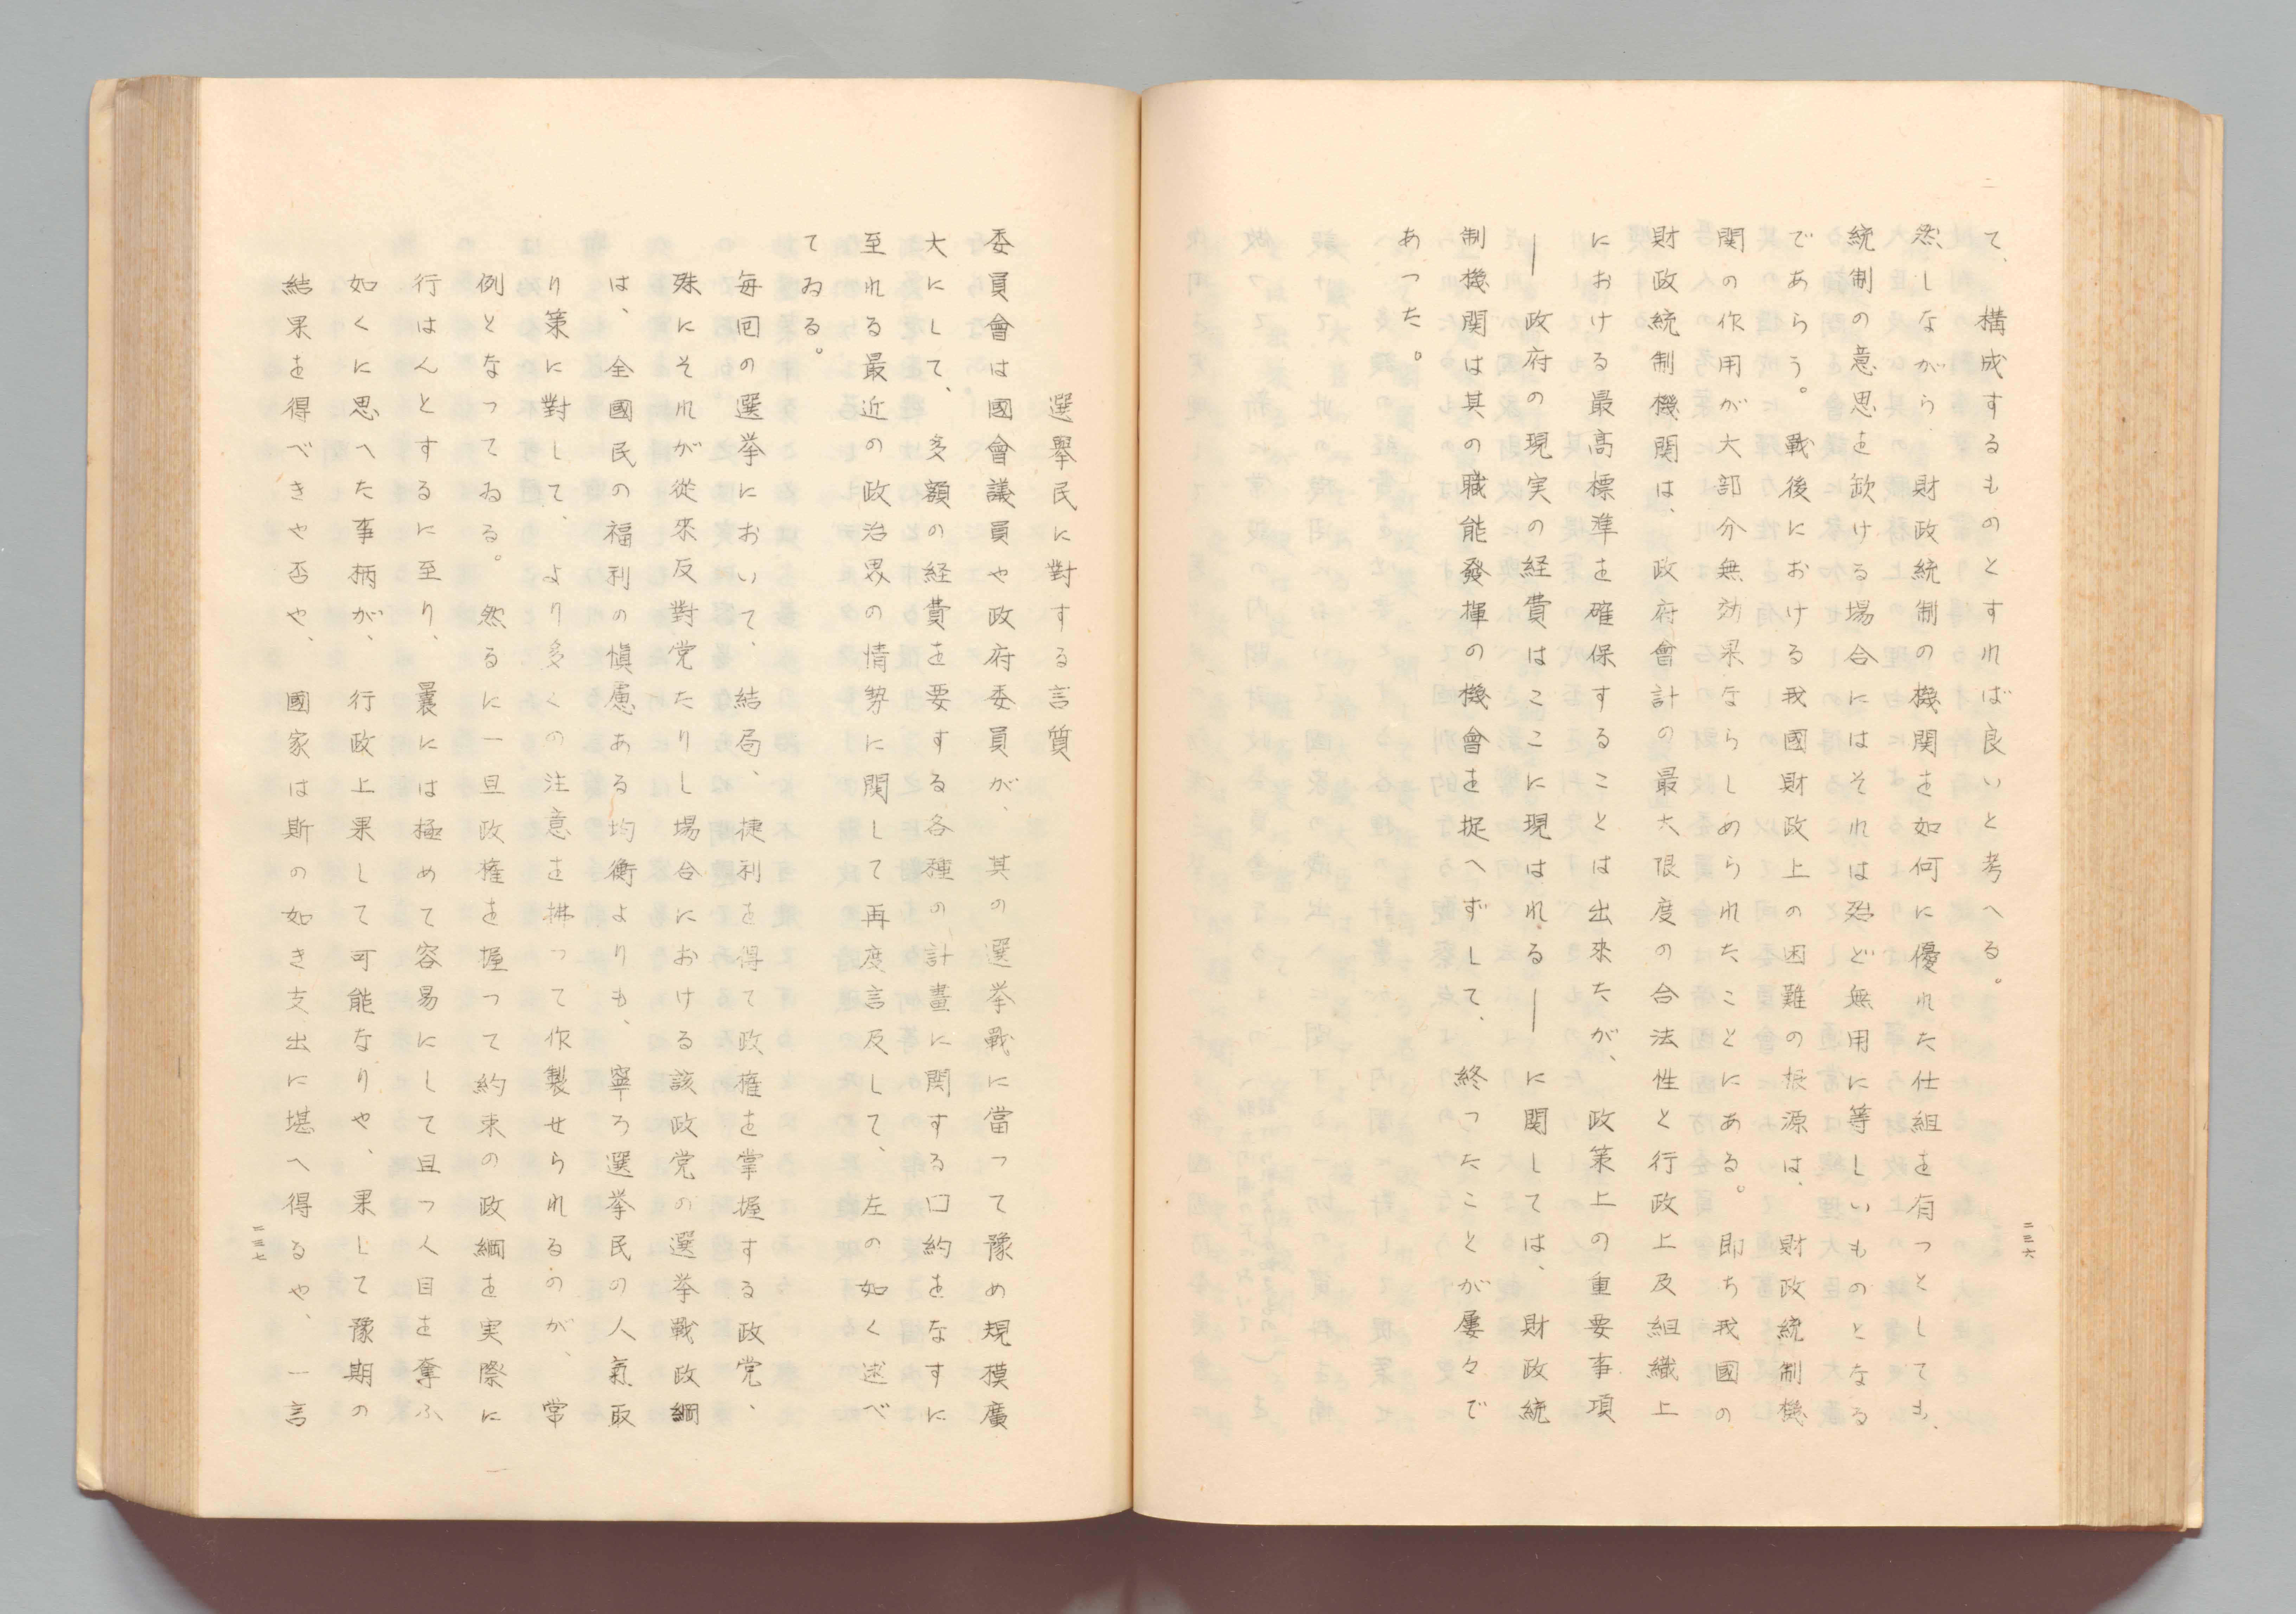 て、構成するものとすれば良いと考へる。
然しながら、財政統制の機関を如何に優れた仕組を有つとしても、
統制の意思を欽ける場合にはそれは殆ど無用に等しいものとなる
であらう。戰後における我國財政上の困難の根源は、財政統制機
関の作用が大部分無効果ならしめられたことにある。即ち我國の
財政統制機関は、政府會計の最大限度の合法性と行政上及組織上
における最高標準を確保することは出來たが、政策上の重要事項
―政府の現実の経費はここに現はれる―に関しては、財政統
制機関は其の職能發揮の機會を捉へずして、終つたことが屢々で
あつた。
二三六
選擧民に對する言質
委員會は國會議員や政府委員が、其の選挙戰に當つて豫め規模廣
大にして、多額の経費を要する各種の計畫に関する口約をなすに
至れる最近の政治界の情勢に関して再度言及して、左の如く述べ
てゐる。
毎回の選挙において、結局、捷利を得て政権を掌握する政党、
殊にそれが從來反對党たりし場合における該政党の選挙戰政綱
は、全國民の福利の愼慮ある均衡よりも、寧ろ選挙民の人氣取
り策に對して、より多くの注意を拂つて作製せられるのが、常
例となつてゐる。然るに一旦政権を握つて約束の政綱を実際に
行はんとするに至り、曩には極めて容易にして且つ人目を奪ふ
如くに思へた事柄が、行政上果して可能なりや、果して豫期の
結果を得べきや否や、國家は斯の如き支出に堪へ得るや、一言
二三七